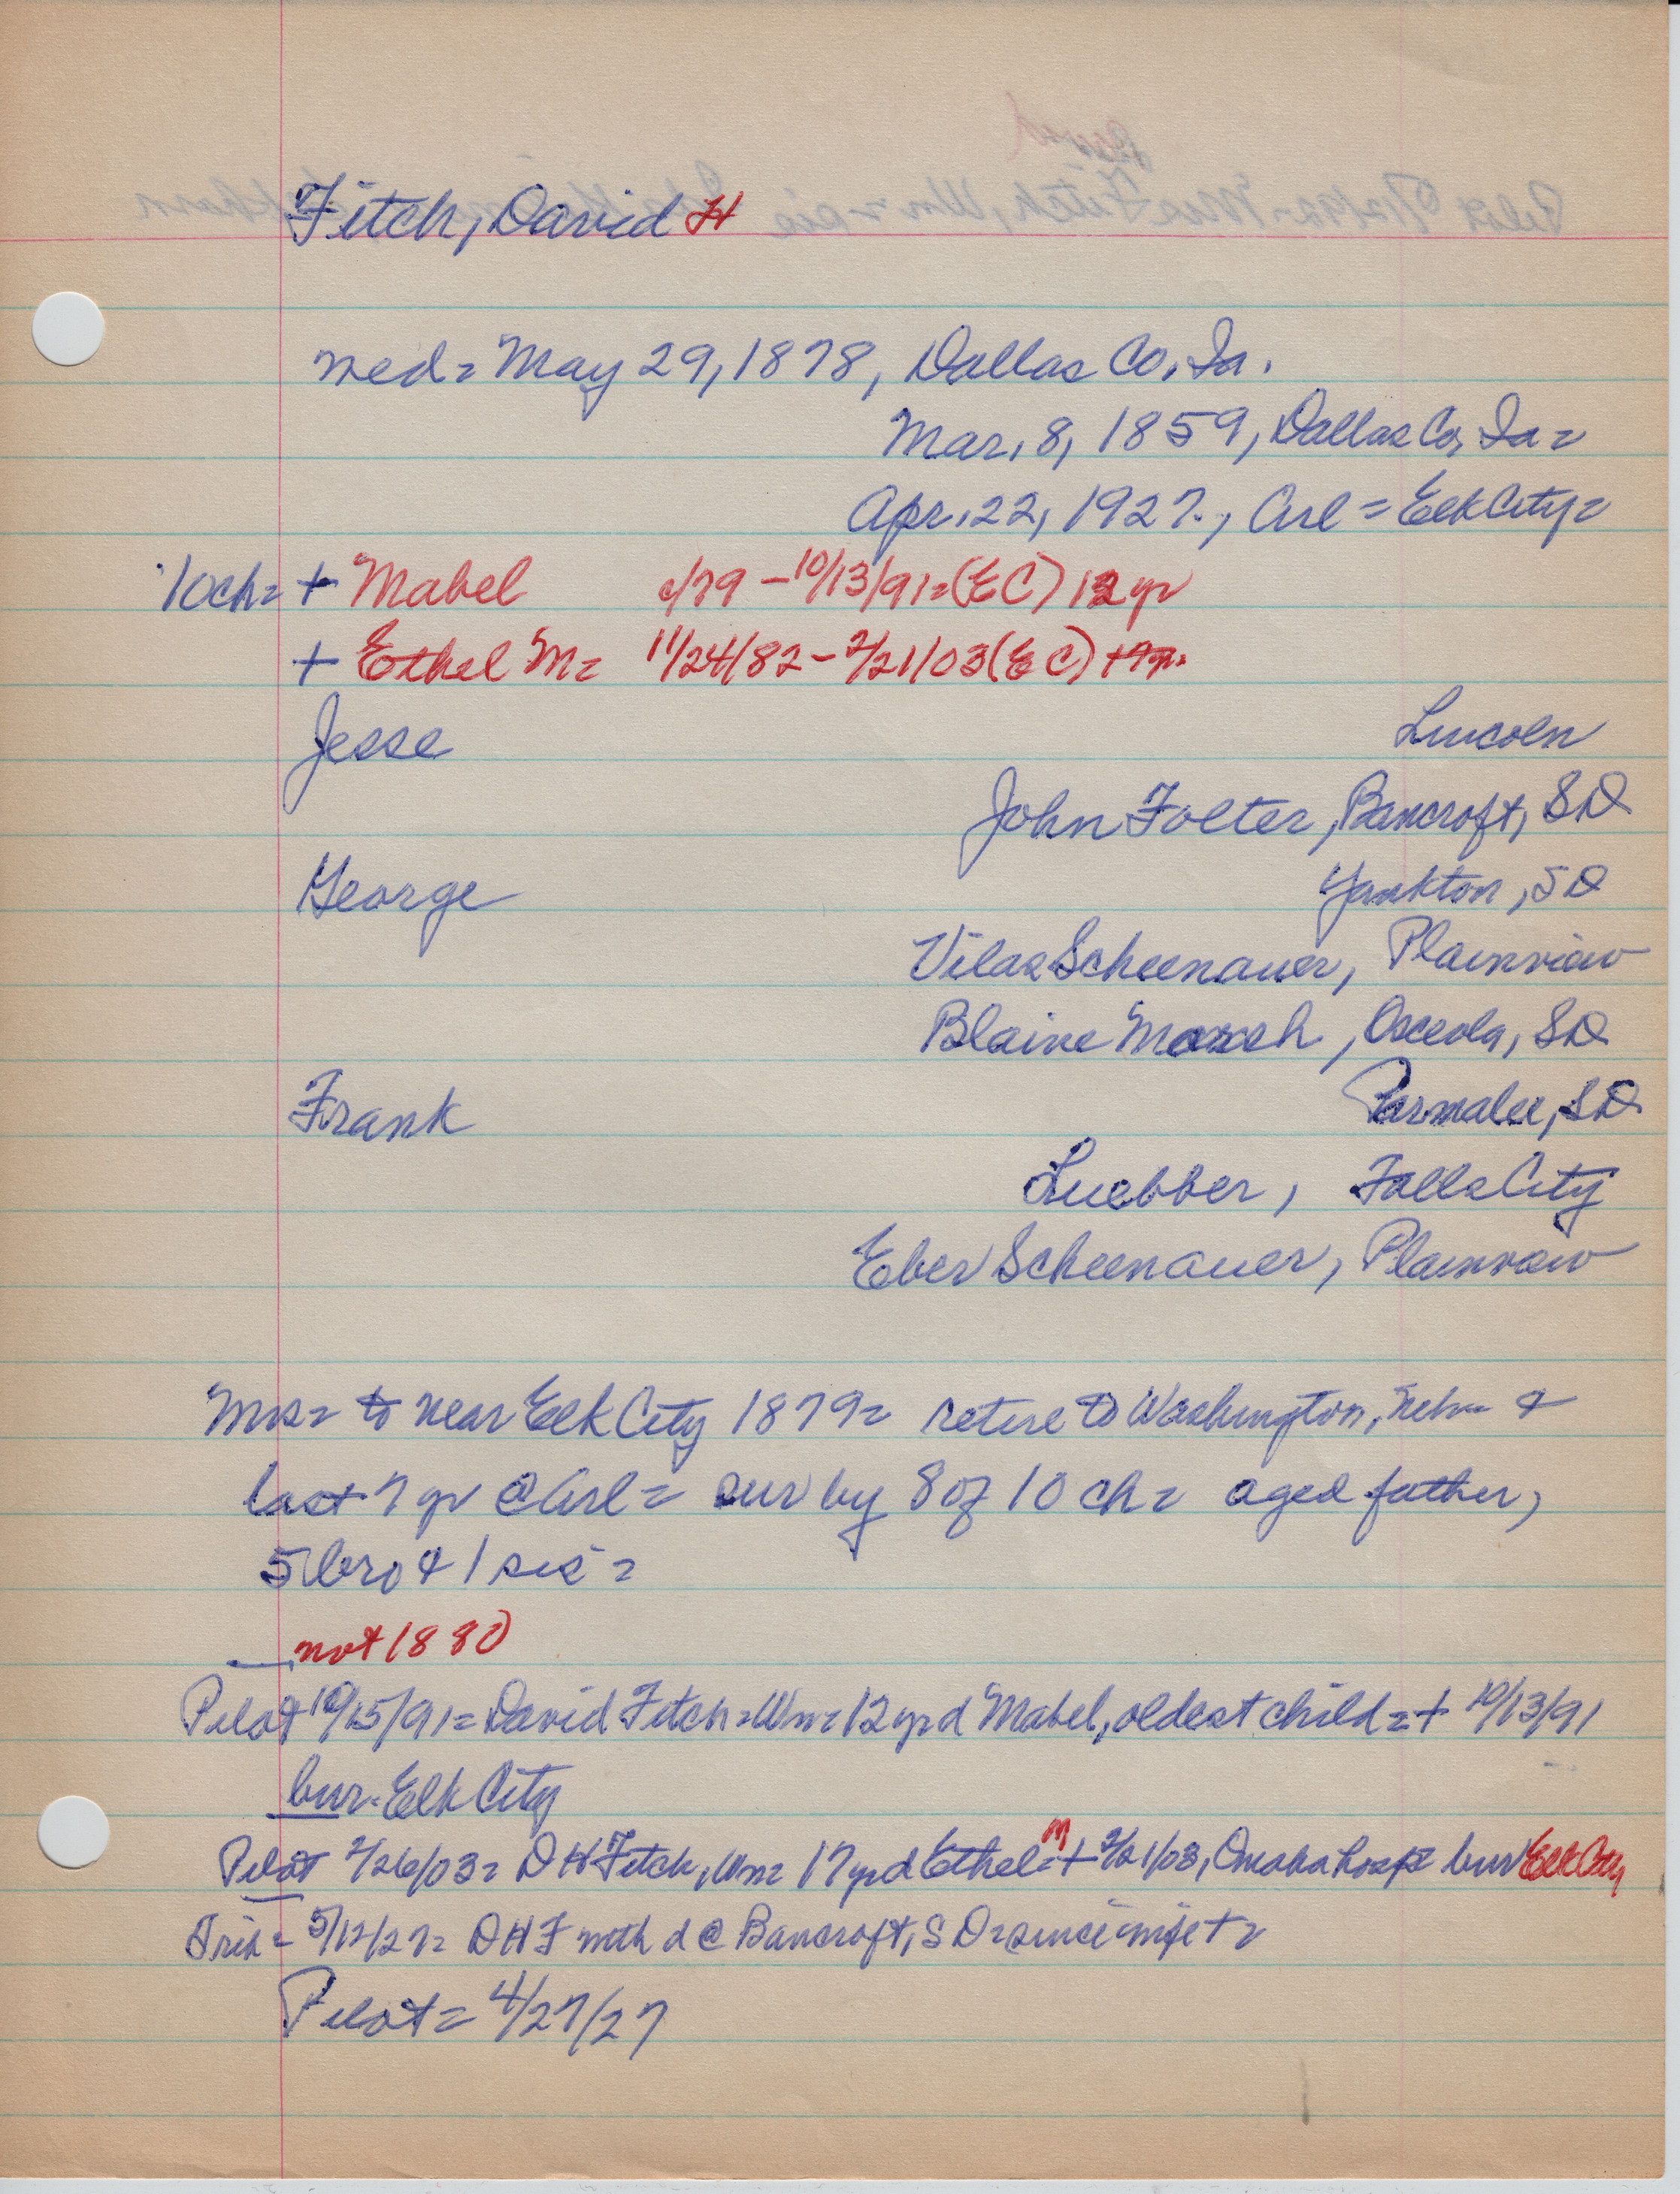 Fitch, David H
wed = May 29, 1878, Dallas Co, Ia.
Mar, 8, 1859, Dallas Co, Ia =
Apr. 22, 1927., Arl = Elk City =
10ch = + Mabel c/79 - 10/13/91 = (EC) 12 yr
+ Ethel M = 11/24/82 - 2/21/03 (EC)
Jesse Lincoln
John Folter, Bancroft, SD
George Yankton, SD
Vilas Scheenauer, Plainview
Blaine Marsh, Osceola, SD
Frank Parmalee, SD
Luebber, Falls City
Eber Scheenauer, Plainview
Mrs = to near Elk City 1879 = retire to Washington, Nebr &
last 7 yr @ Arl = sur by 8 of 10 ch = aged father,
5 bro & 1 sis =
not 1880
Pilot 10/15/91 = David Fitch = Wn = 12 yr d Mabel, oldest child = + 10/13/91
bur. Elk City
Pilot 2/26/03 = D H Fitch, Wn = 17 yr d Ethel M = + 2/21/03, Omaha hosp = bur Elk City
Trib = 5/12/27 = D H F mth d @ Bancroft, SD = since wife + =
Pilot = 4/27/27